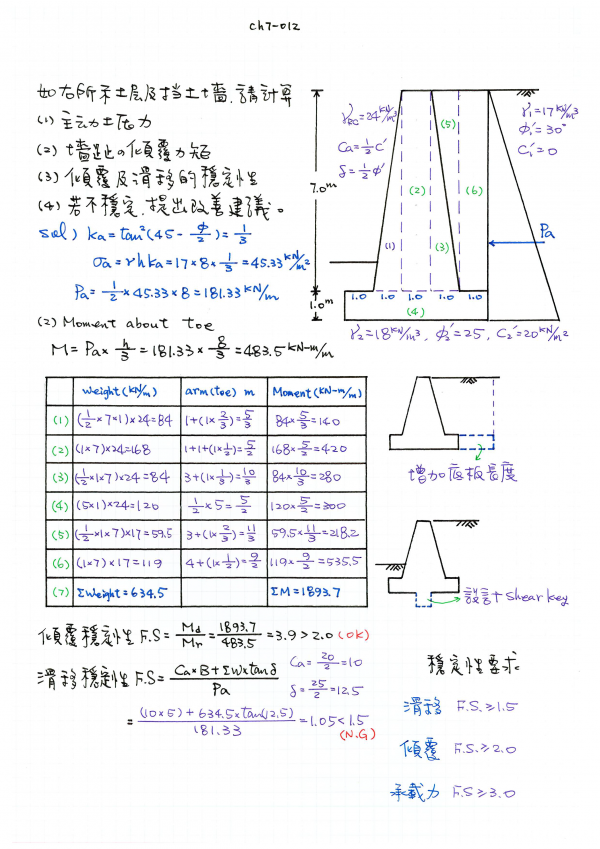 ch7-012
如右所示土层及挡土墙,請計算
(1) 主动土压力
(2) 墙趾の傾覆力矩
(3) 傾覆及滑移的穩定性
(4) 若不穩定,提出改善建議。
sol) ka=tan²(45-φ/2)=1/3
σa=γhka=17×8×1/3=45.33 kN/m²
Pa=1/2×45.33×8=181.33 kN/m
(2) Moment about toe
M=Pa×h/3=181.33×8/3=483.5 kN-m/m
γRC=24 kN/m³
Ca=1/2C'
δ=1/2φ'
γ1=17 kN/m³
φ1'=30°
C1'=0
7.0m
1.0m
(1)
(2)
(3)
(4)
(5)
(6)
Pa
1.0 1.0 1.0 1.0 1.0
γ2=18 kN/m³, φ2'=25, C2'=20 kN/m²
weight (kN/m) arm (toe) m Moment (kN-m/m)
(1) (1/2×7×1)×24=84 1+(1×2/3)=5/3 84×5/3=140
(2) (1×7)×24=168 1+1+(1×1/2)=5/2 168×5/2=420
(3) (1/2×1×7)×24=84 3+(1×1/3)=10/3 84×10/3=280
(4) (5×1)×24=120 1/2×5=5/2 120×5/2=300
(5) (1/2×1×7)×17=59.5 3+(1×2/3)=11/3 59.5×11/3=218.2
(6) (1×7)×17=119 4+(1×1/2)=9/2 119×9/2=535.5
(7) Σweight=634.5 ΣM=1893.7
增加底板長度
設置+shear key
傾覆穩定性 F.S=Md/Mr=1893.7/483.5=3.9>2.0 (OK)
滑移穩定性 F.S=(Ca×B+ΣW×tanδ)/Pa
Ca=20/2=10
δ=25/2=12.5
=((10×5)+634.5×tan(12.5))/181.33=1.05<1.5
(N.G)
穩定性要求
滑移 F.S.≥1.5
傾覆 F.S.≥2.0
承載力 F.S≥3.0